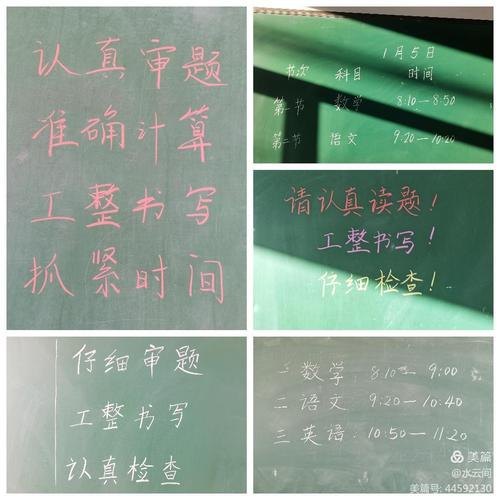 认真审题
准确计算
工整书写
抓紧时间
1月5日
节次 科目 时间
第一节 数学 8:10—8:50
第二节 语文 9:20—10:20
请认真读题！
工整书写！
仔细检查！
仔细审题
工整书写
认真检查
数学 8:10—9:00
二 语文 9:20—10:40
三 英语 10:50—11:20
美篇
@水云间
美篇号: 44592130